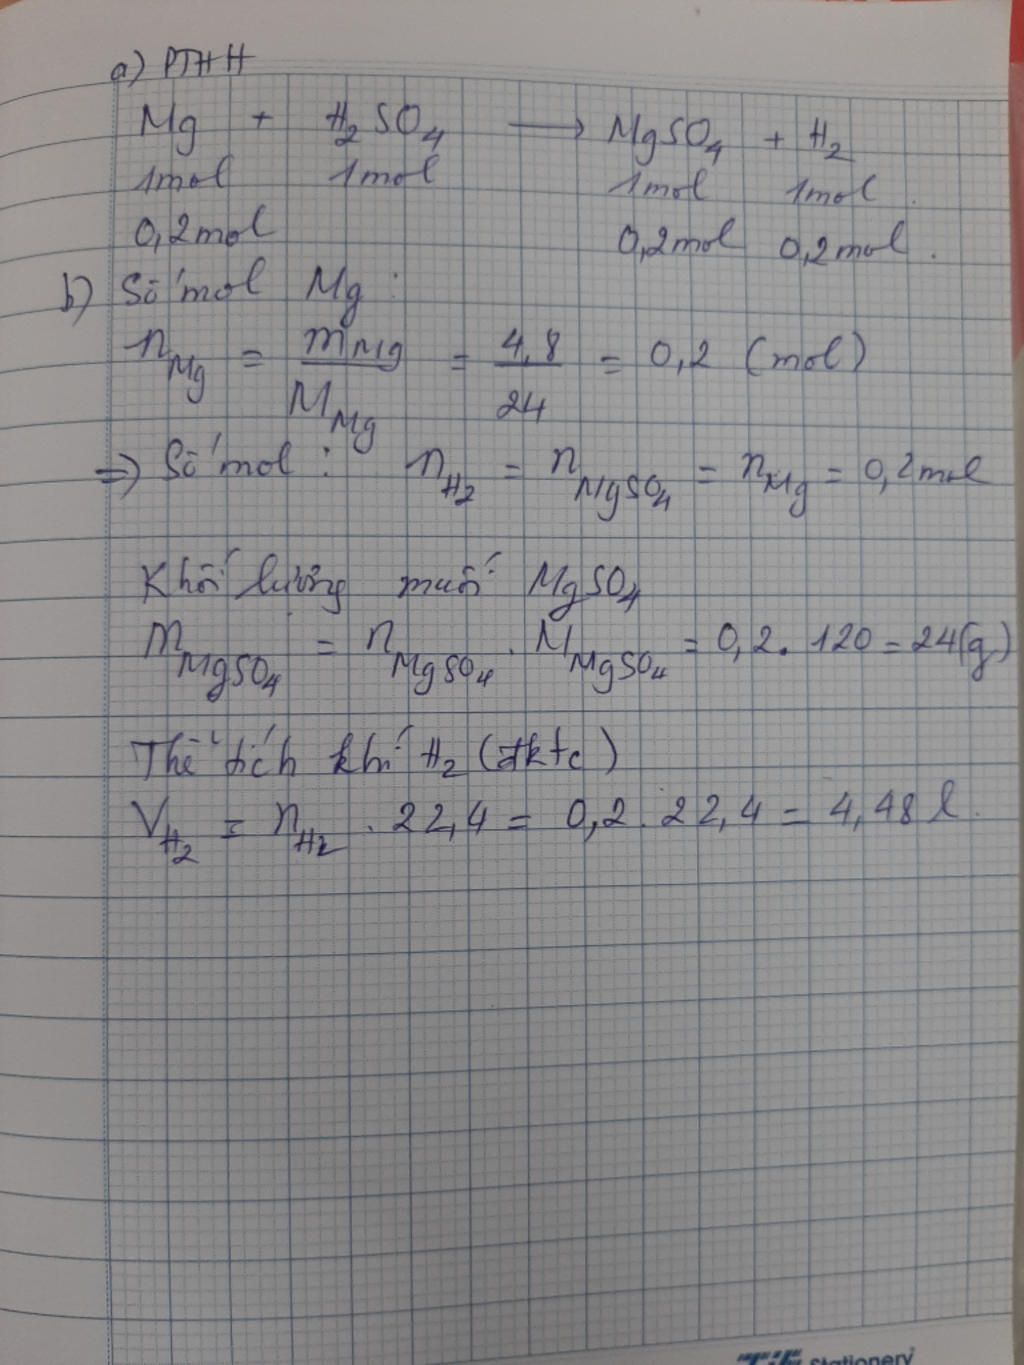 a) PTHH
Mg + H₂SO₄ → MgSO₄ + H₂
1mol 1mol 1mol 1mol.
0,2mol 0,2mol 0,2mol.
b) Số mol Mg:
n_Mg = m_Mg / M_Mg = 4,8 / 24 = 0,2 (mol)
=> Số mol: n_H₂ = n_MgSO₄ = n_Mg = 0,2mol
Khối lượng muối MgSO₄
m_MgSO₄ = n_MgSO₄ . M_MgSO₄ = 0,2 . 120 = 24(g)
Thể tích khí H₂ (đktc)
V_H₂ = n_H₂ . 22,4 = 0,2 . 22,4 = 4,48 l.
Stationery